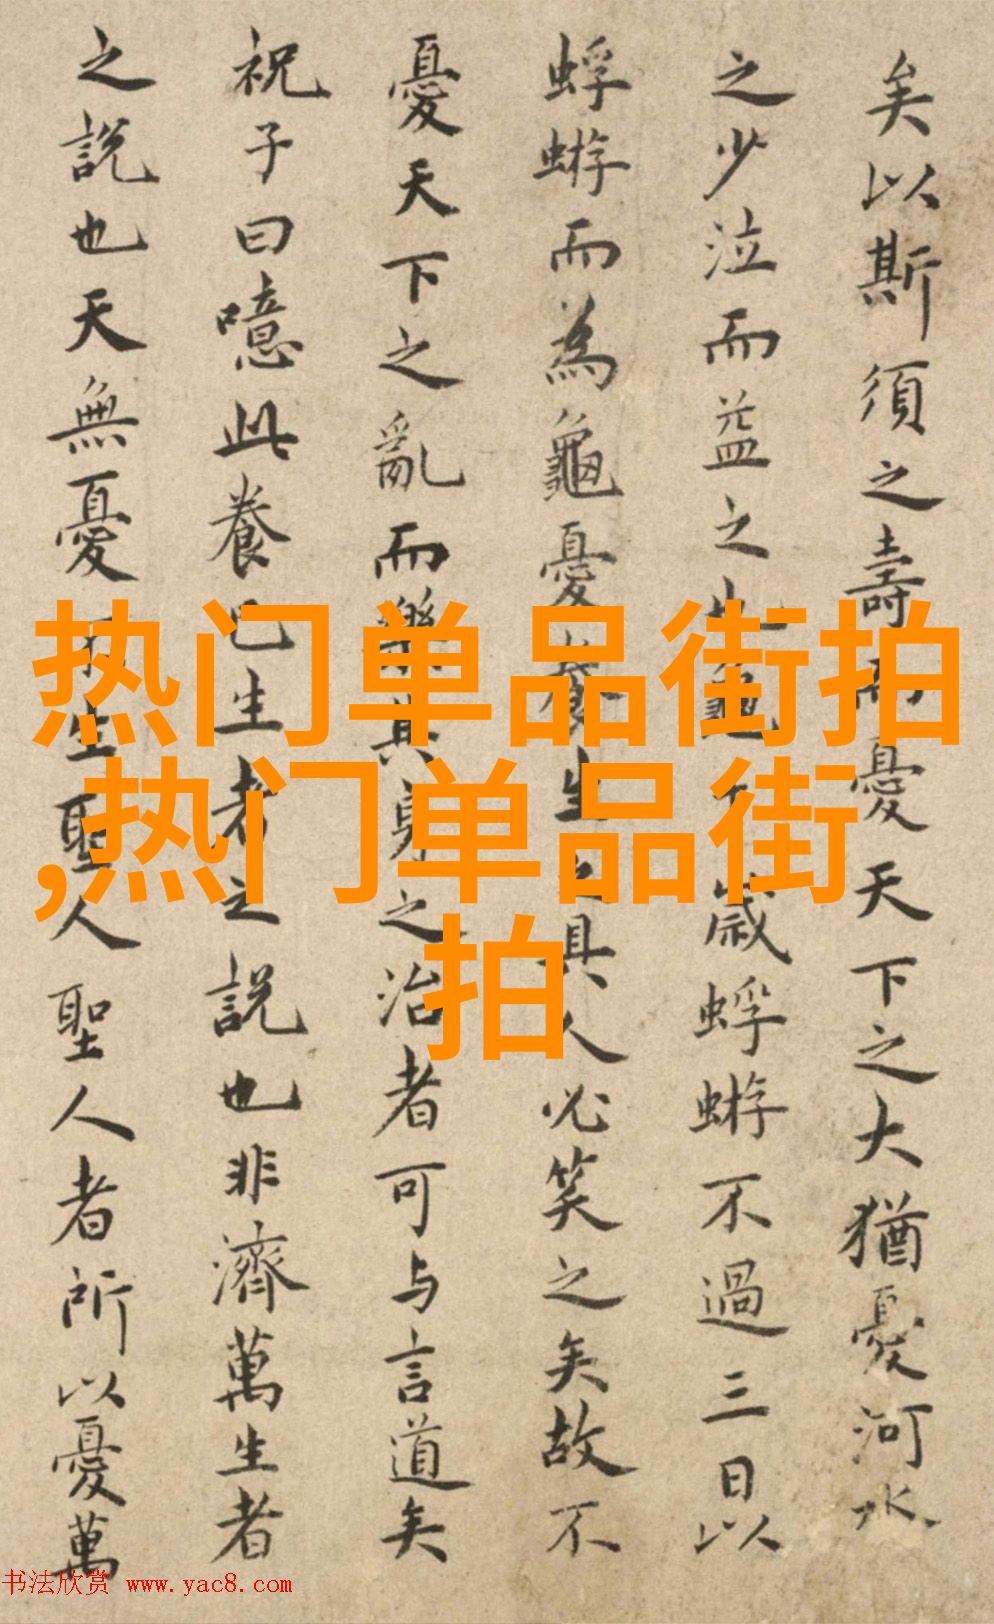 矣以斯須之壽而憂天下之大猶憂河水
之少泣而益之也龜千歲蜉蝣不過三日以
蜉蝣而為龜憂養生之具人必笑之矣故不
憂天下之亂而樂其身之治者可与言道矣
祝子曰噫此養已生者之説也非濟萬生者
之説也天無憂不生聖人聖人者所以憂萬
热门单品街拍
,热门单品街
拍
书法欣赏 www.yac8.com